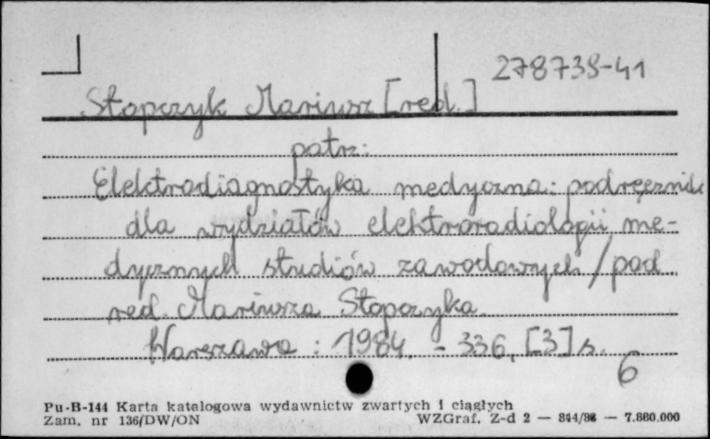 278738-41
Stopczyk Mariusz [red.]
patrz:
Elektrodiagnostyka medyczna: podręcznik
dla wydziałów elektroradiologii me-
dycznych studiów zawodowych / pod
red. Mariusza Stopczyka.
Warszawa : 1984. - 336, [3] s.
6
Pu-B-144 Karta katalogowa wydawnictw zwartych i ciągłych
Zam. nr 136/DW/ON WZGraf. Z-d 2 — 844/86 — 7.880.000